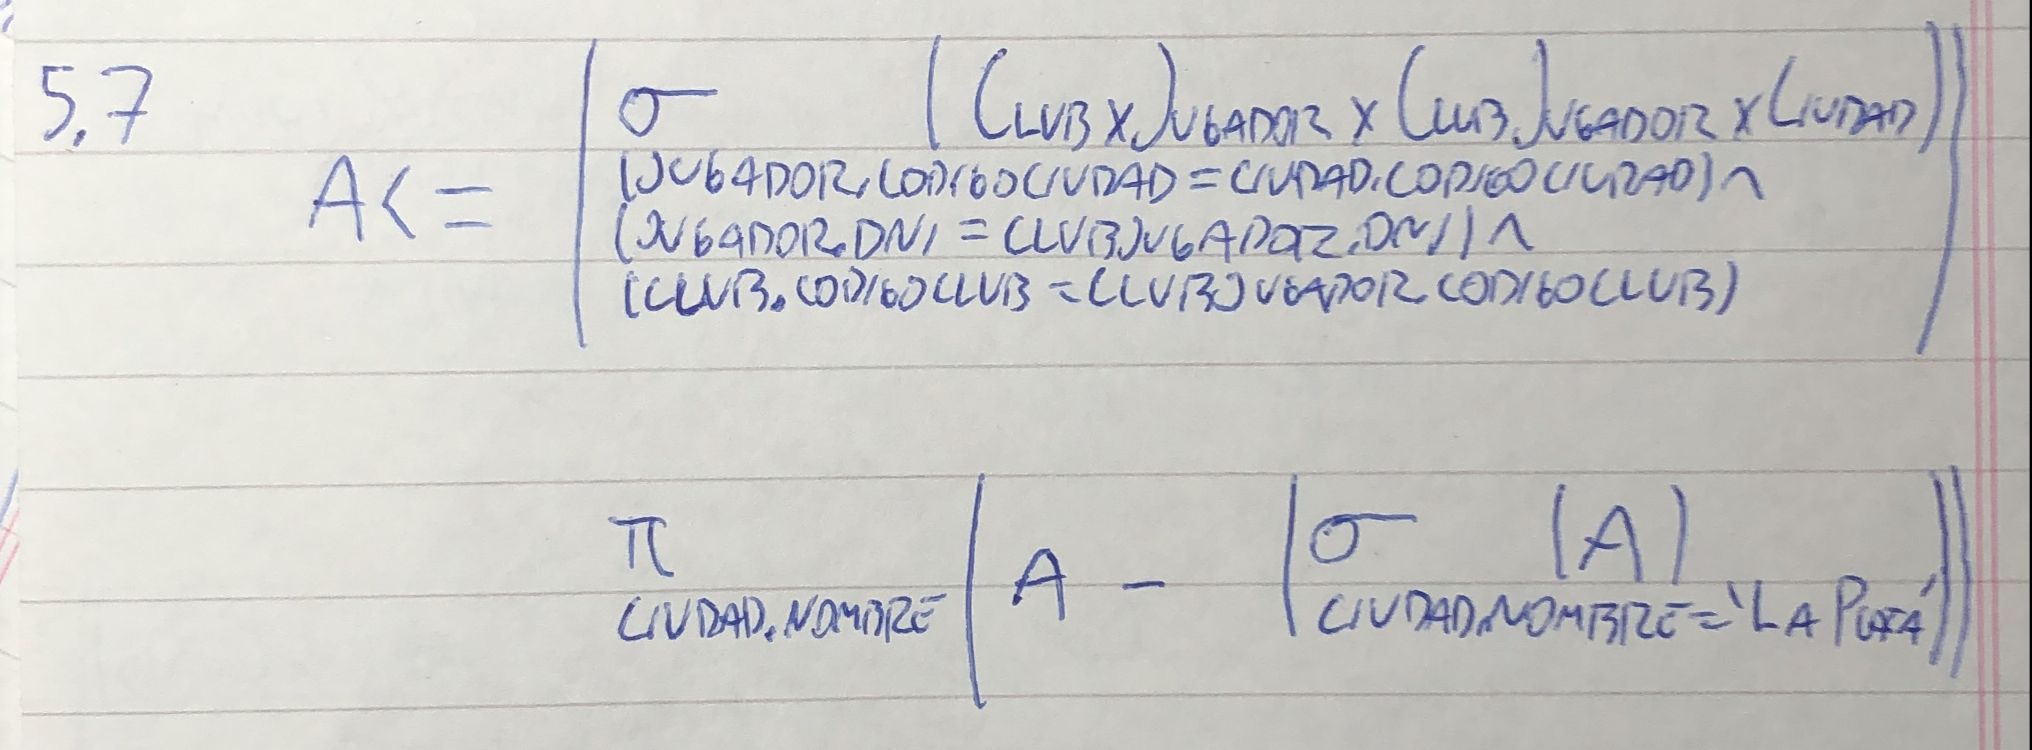 5.7
σ ((CLUB X JUGADOR X CLUBJUGADOR X CIUDAD))
A <=
(JUGADOR.CODIGOCIUDAD = CIUDAD.CODIGOCIUDAD) ^
(JUGADOR.DNI = CLUBJUGADOR.DNI) ^
(CLUB.CODIGOCLUB = CLUBJUGADOR.CODIGOCLUB)
π ( A - ( σ (A)
CIUDAD.NOMBRE CIUDAD.NOMBRE = 'LA PLATA' ))